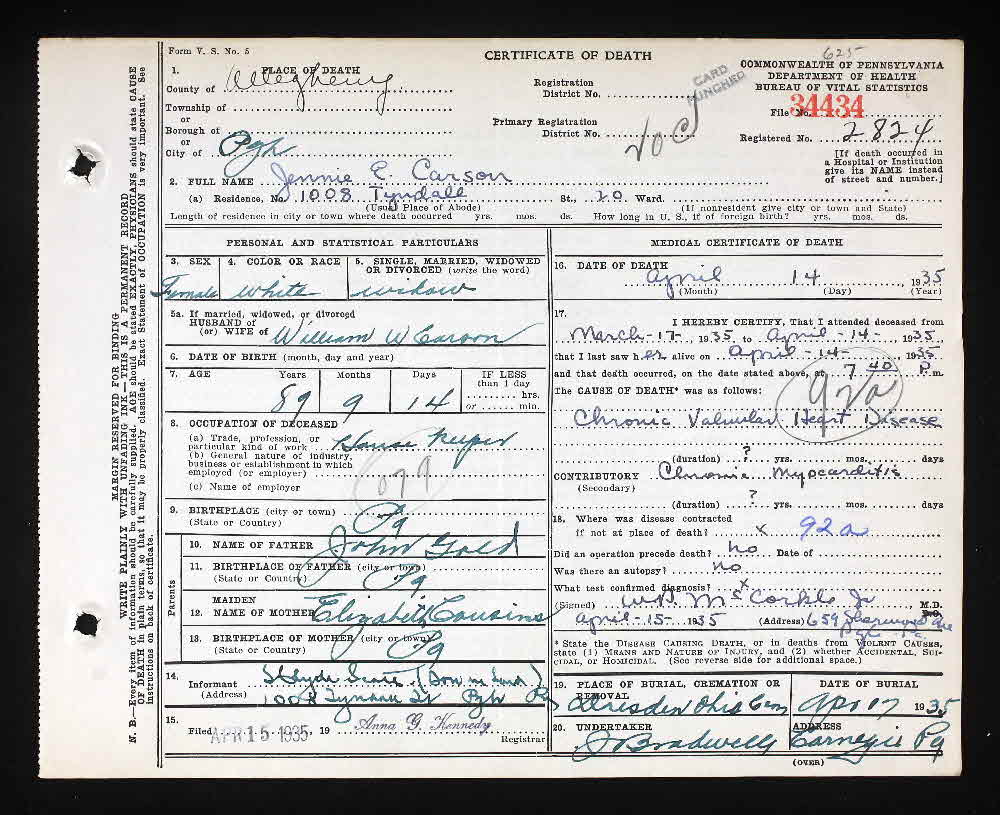 Form V. S. No. 5
CERTIFICATE OF DEATH
625
COMMONWEALTH OF PENNSYLVANIA
DEPARTMENT OF HEALTH
BUREAU OF VITAL STATISTICS
1. PLACE OF DEATH
County of Allegheny
Township of
or
Borough of
or
City of Pgh
Registration
District No.
Primary Registration
District No.
CARD PUNCHED
File No. 34434
Registered No. 2824
[If death occurred in
a Hospital or Institution
give its NAME instead
of street and number.]
2. FULL NAME Jennie E. Carson
(a) Residence, No. 1008 Tyndall St., 20 Ward.
(Usual Place of Abode) (If nonresident give city or town and State)
Length of residence in city or town where death occurred yrs. mos. ds. How long in U. S., if of foreign birth? yrs. mos. ds.
PERSONAL AND STATISTICAL PARTICULARS
3. SEX
Female
4. COLOR OR RACE
White
5. SINGLE, MARRIED, WIDOWED
OR DIVORCED (write the word)
widow
5a. If married, widowed, or divorced
HUSBAND of
(or) WIFE of William W Carson
6. DATE OF BIRTH (month, day and year)
7. AGE Years Months Days IF LESS
than 1 day
hrs.
or min.
89 9 14
8. OCCUPATION OF DECEASED
(a) Trade, profession, or
particular kind of work House Keeper
(b) General nature of industry,
business or establishment in which
employed (or employer)
(c) Name of employer
079
9. BIRTHPLACE (city or town) Pa
(State or Country)
Parents
10. NAME OF FATHER John Gold
11. BIRTHPLACE OF FATHER (city or town) Pa
(State or Country)
12. MAIDEN
NAME OF MOTHER Elizabeth Cousins
13. BIRTHPLACE OF MOTHER (city or town) Pa
(State or Country)
14.
Informant
1008 Tyndall St Pgh Pa
15.
Filed APR 15 1935, 19 Anna G. Kennedy
Registrar
MEDICAL CERTIFICATE OF DEATH
16. DATE OF DEATH
April 14 1935
(Month) (Day) (Year)
17.
I HEREBY CERTIFY, That I attended deceased from
March-17-, 1935 to April-14-, 1935,
that I last saw her alive on April-14- 1935
and that death occurred, on the date stated above, at 7 40 P. m.
The CAUSE OF DEATH* was as follows:
92a
Chronic Valvular Heart Disease
(duration) ? yrs. mos. days
CONTRIBUTORY Chronic Myocarditis
(Secondary)
(duration) ? yrs. mos. days
18. Where was disease contracted
if not at place of death? x 92a
Did an operation precede death? No Date of
Was there an autopsy? No
What test confirmed diagnosis? x
(Signed) W.D. McCorkle Jr M.D.
April-15-1935 (Address) 659 Sherwood Ave
Pgh Pa.
* State the DISEASE CAUSING DEATH, or in deaths from VIOLENT CAUSES,
state (1) MEANS AND NATURE OF INJURY, and (2) whether ACCIDENTAL, SUI-
CIDAL, or HOMICIDAL. (See reverse side for additional space.)
19. PLACE OF BURIAL, CREMATION OR
REMOVAL
Dresden Ohio Cem
DATE OF BURIAL
Apr 17 1935
20. UNDERTAKER
Bradwell
ADDRESS
Carnegie Pa
(OVER)
MARGIN RESERVED FOR BINDING
WRITE PLAINLY WITH UNFADING INK—THIS IS A PERMANENT RECORD
N. B.—Every item of information should be carefully supplied. AGE should be stated EXACTLY. PHYSICIANS should state CAUSE
OF DEATH in plain terms, so that it may be properly classified. Exact Statement of OCCUPATION is very important. See
instructions on back of certificate.